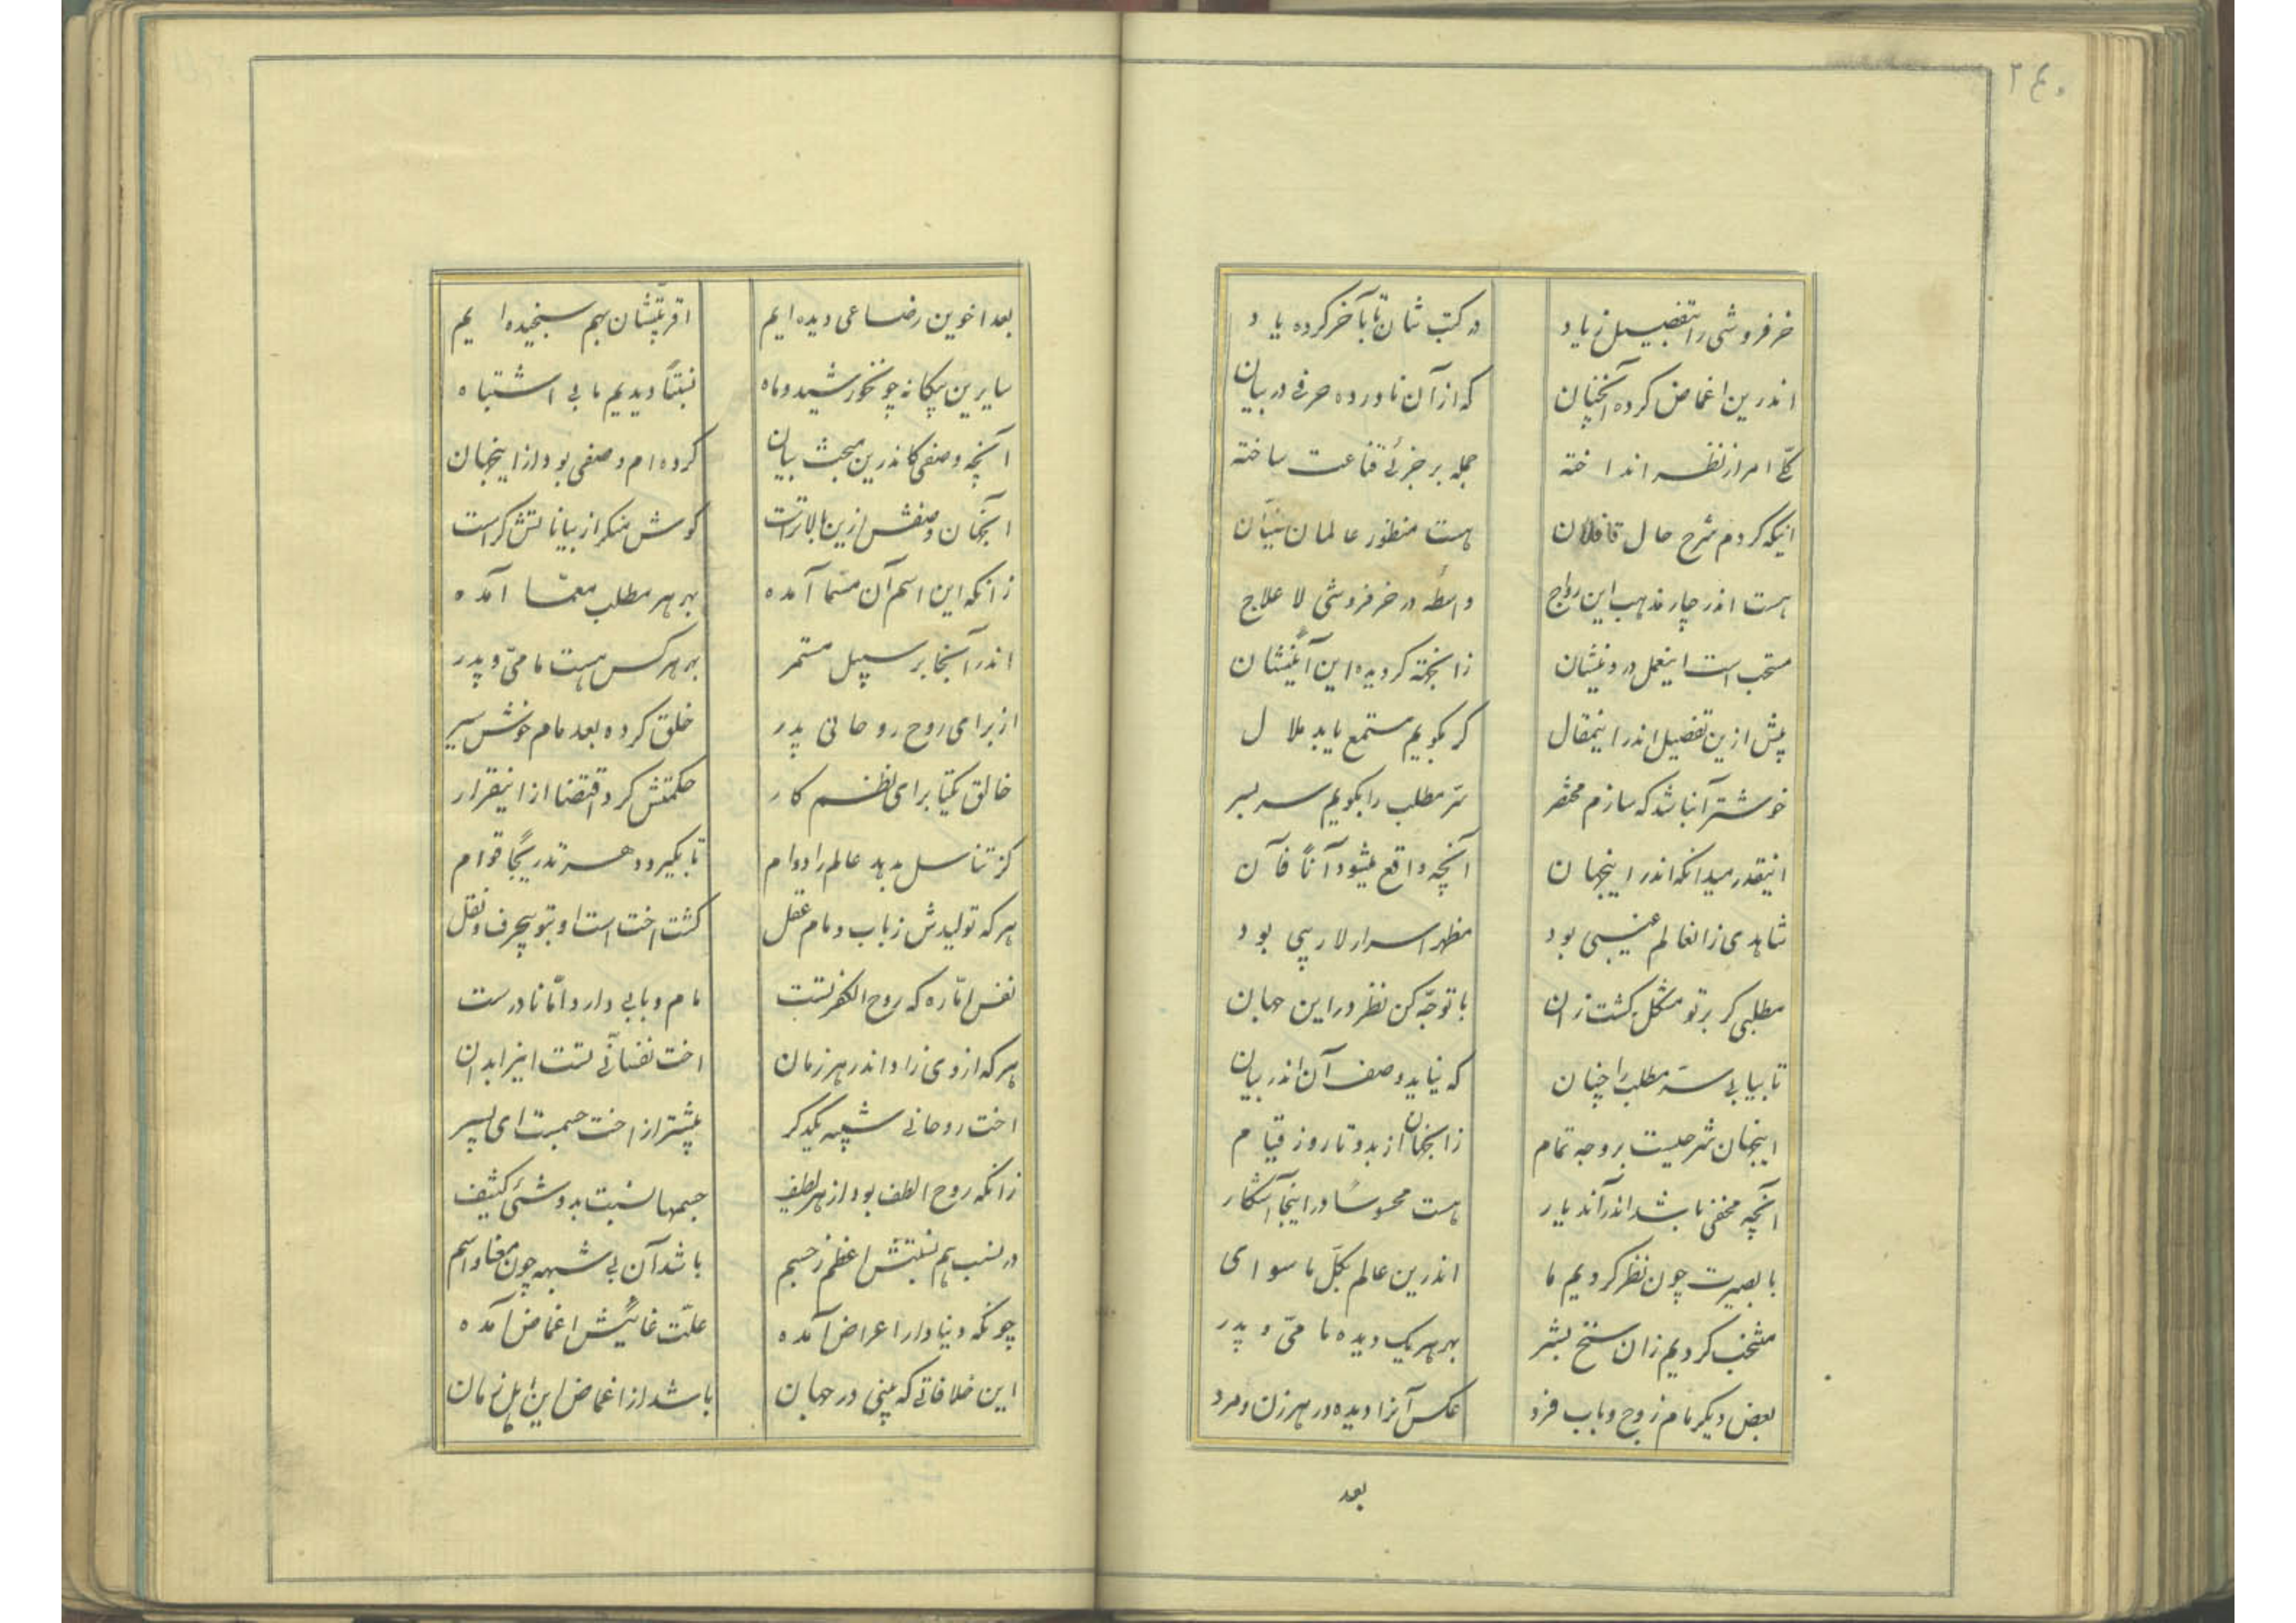 ۲۴۰
خرفروشی را بتفصیل زیاد در کتب شان تا بآخر کرده یاد
اندرین اغماض کرده آنچنان که از آن ناورده حرفی در بیان
کلّی امر از نظر انداخته جمله بر جزئی قناعت ساخته
اینکه کردم شرح حال قافلان هست منظور عالمان
هست اندر چار مذهب این رواج واسطه در خرفروشی لا علاج
مستحب است اینعمل در دینشان زانجهة کردیده این آئینشان
پیش ازین تفضیل اندر اینمقال کر بکویم مستمع یابد ملال
خوشتر آنباشد که سازم مختصر سرّ مطلب را بکویم سر بسر
اینقدر میدانکه اندر اینجهان آنچه واقع میشود آناً فآن
شاهدی زانعالم غیبی بود مظهر اسرار لاریبی بود
مطلبی کر بر تو مشکل کشت زان با توجّه کن نظر در این جهان
تا بیابی سرّ مطلب را چنان که نیاید وصف آن اندر بیان
اینجهان شرحیست بر وجه تمام زانجهان از بدو تا روز قیام
آنچه مخفی باشد اندر آندیار هست محسوسا در اینجا آشکار
با بصیرت چون نظر کردیم ما اندرین عالم بکلّ ماسوای
منتخب کردیم زان سنخ بشر بهر هر یک دیده مامیّ و پدر
بعض دیکر مام زوج و باب فرد عکس آنرا دیده در هر زن و مرد
بعد
بعد اخوین رضاعی دیده ایم اقربیّتشان بهم سنجیده ایم
سایرین بیکانه چونخورشید و ماه نسبتاً دیدیم ما بی اشتباه
آنچه وصفی کاندرین مبحث بیان کرده ام وصفی بود از اینجهان
آنجهان وصفش ازین بالاترست کوش منکر از بیاناتش کراست
زانکه این اسم آن مسمّا آمده بهر هر مطلب معمّا آمده
اندر آنجا بر سبیل مستمر بهر هر کس هست مامیّ و پدر
از برای روح روحانی پدر خلق کرده بعد مام خوش سیر
خالق یکتا برای نظم کار حکمتش کرد اقتضا از اینقرار
کز تناسل بدهد عالم را دوام تا بکیرد دهر تدریجاً قوام
هر که تولیدش ز باب و مام عقل کشت اخت است او بتو بیحرف و نقل
نفس امّاره که روح الکفر تست مام و بابی دارد امّا نادرست
هر که از وی زاد اندر هر زمان اخت نفسانیّ تست اینرا بدان
اخت روحانی شبیه یکدکر پیشتر از اخت جسمیت ای پسر
زانکه روح الطف بود از هر لطیف جسمها نسبت بدو شیئی کثیف
در نسب هم نسبتش اعظم ز جسم باشد آن بی شبهه چون معنا و اسم
چونکه دنیا دار اعراض آمده علّت غائیش اغماض آمده
این خلافاتی که بینی در جهان باشد از اغماض این اهل زمان